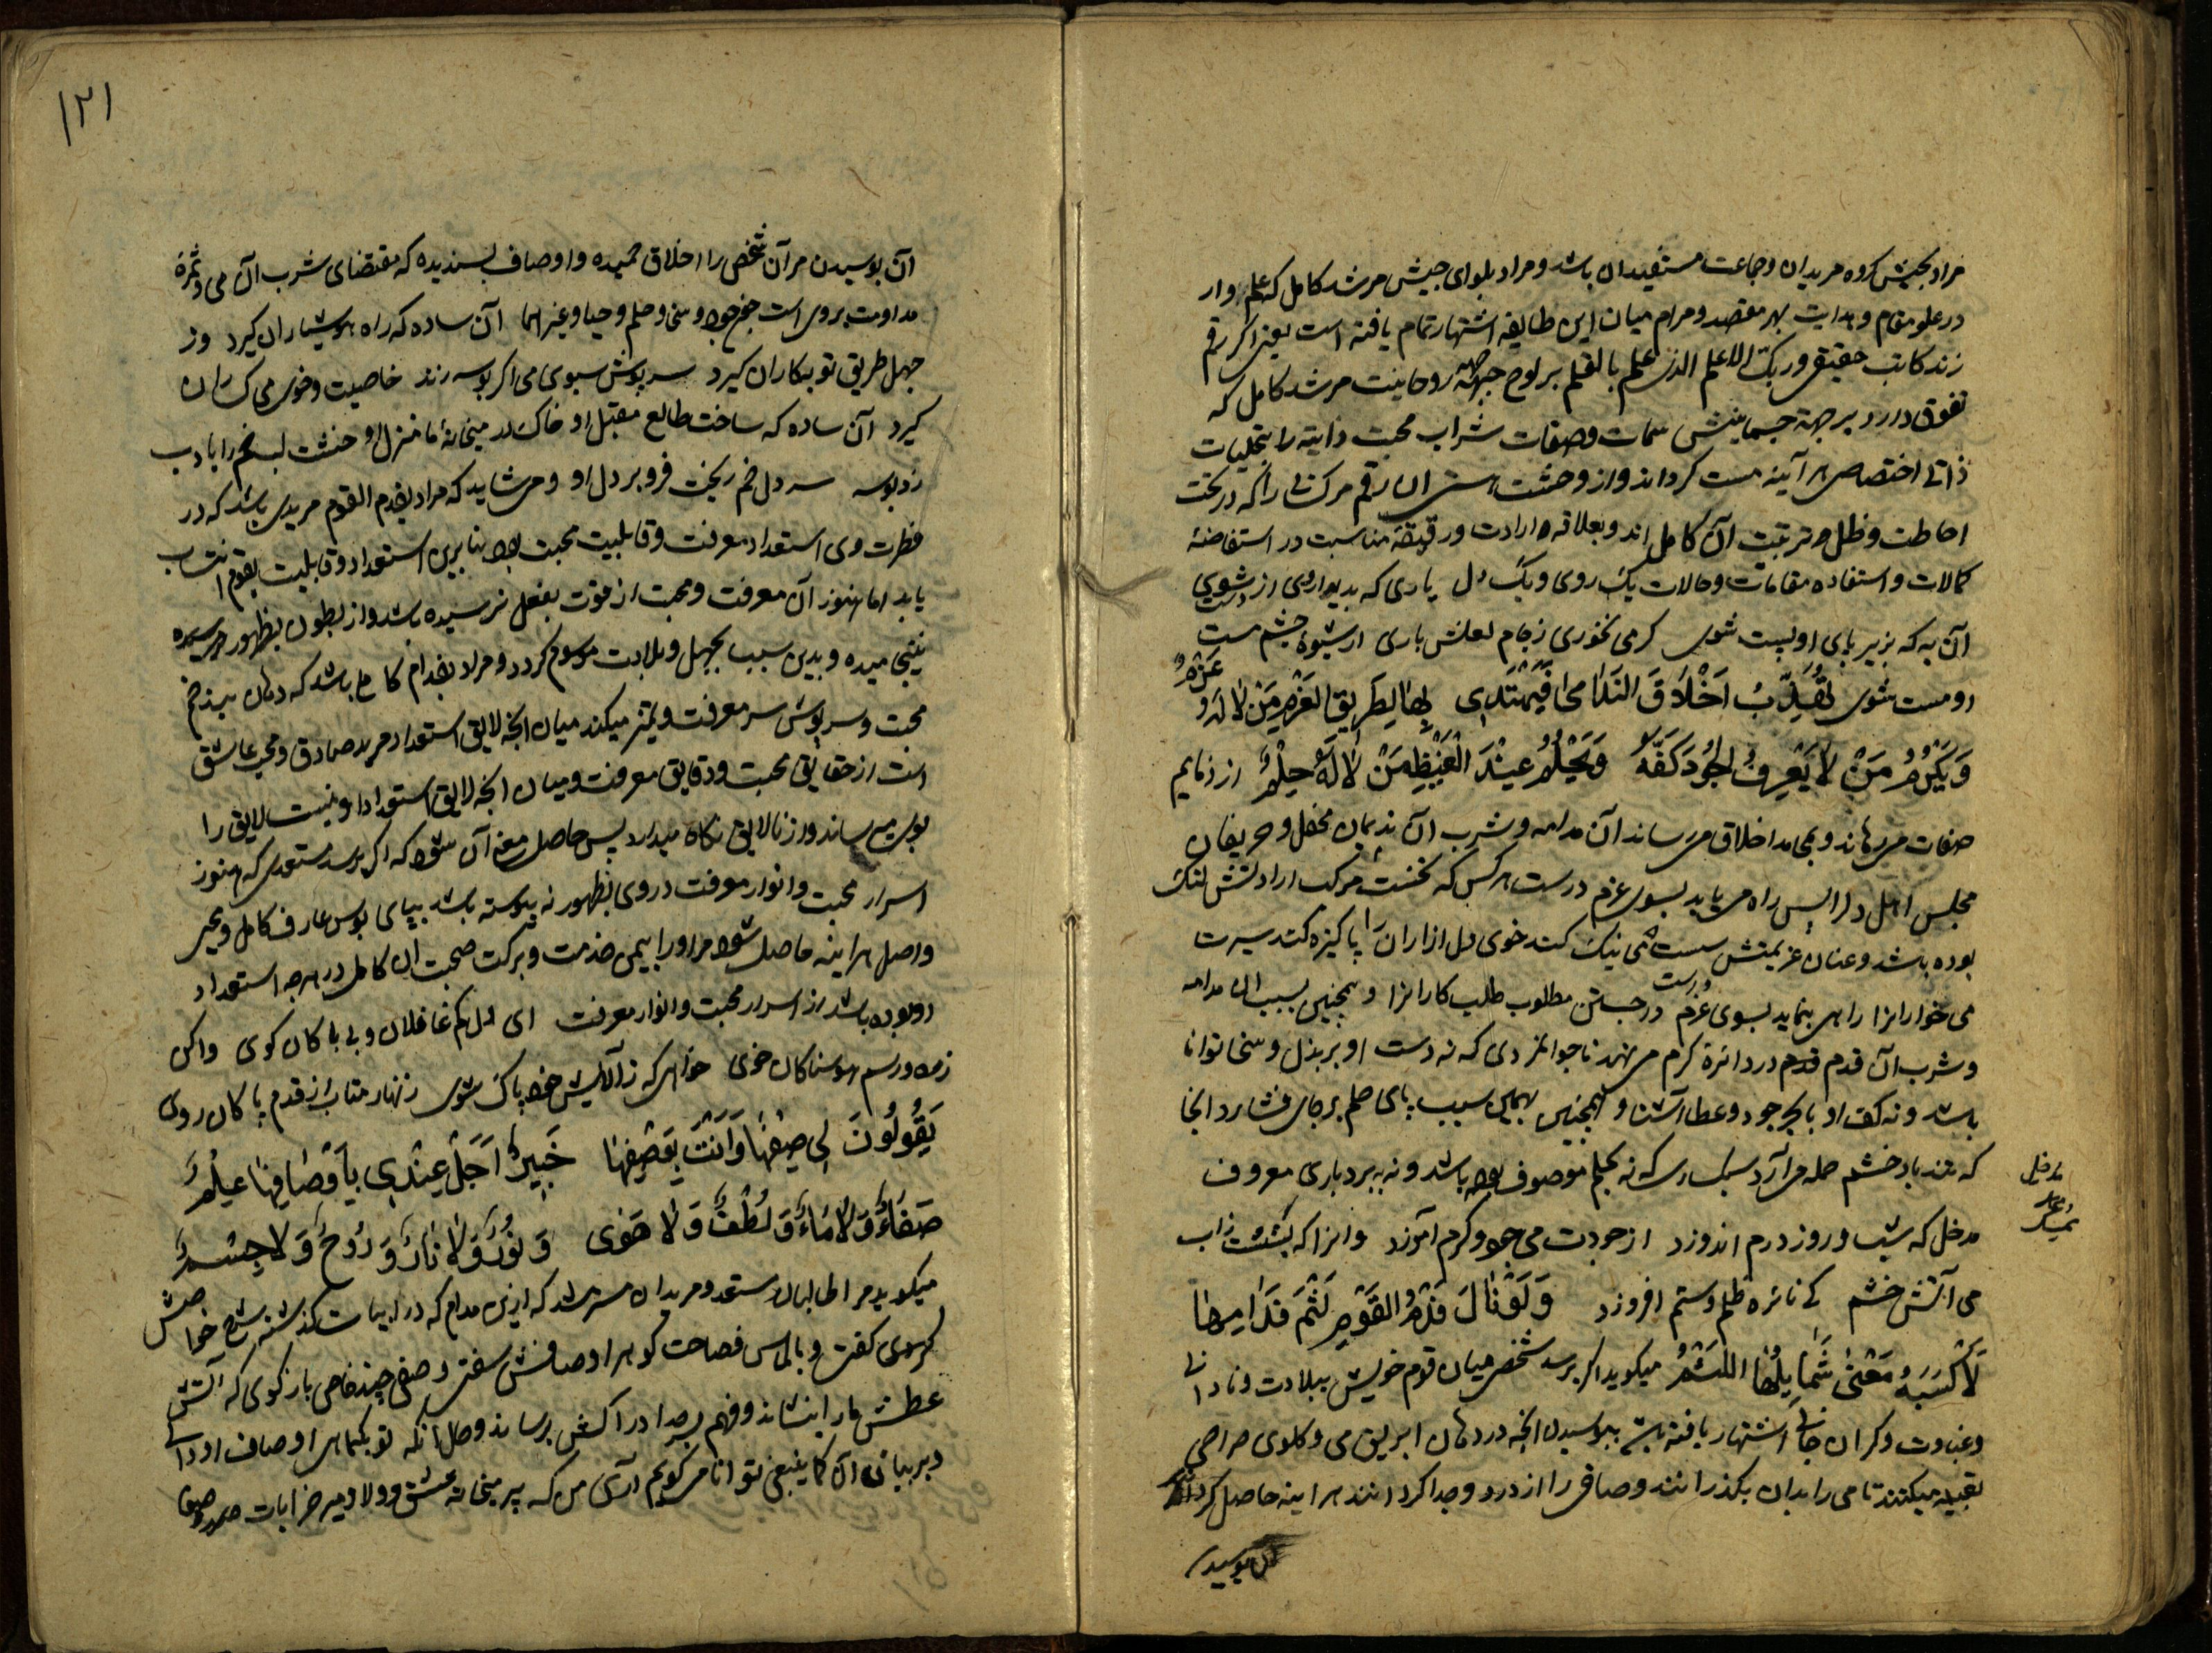 مراد بجیش کروه مریدان و جماعت مستفیدان باشد و مراد بلوای جیش مرشد کامل که علم وار
در علو مقام و هدایت بهر مقصد و مرام میان این طایفه اشتهار تمام یافته است یعنی اکر رقم
زند کاتب حقیقی و ربک الاعلم الذی علم بالقلم بر لوح جبهه روحانیت مرشد کامل که
تفوق دارد بر جهة جسمانیتش سمات و صفات شراب محبت ذاتیه را بتجلیات
ذاتی اختصاصی هر آینه مست کرداند و از وحشت هستی ان رقم مر کسانی را که در تحت
احاطت و ظل تربیت آن کامل اند و بعلاقه ارادت و رقیقه مناسبت در استفاضهٔ
کمالات و استفاده مقامات و حالات یک روی و یک دل یاری که بدیدار وی از دست شوی
آن به که بزیر پای او پست شوی کر می نخوری ز جام لعلش باری از شیوهٔ چشم مست
او مست شوی تُهَذِّبُ اَخْلَاقَ النَّدَامَى فَيَهْتَدِي بِهَا لِطَرِيقِ العَزْمِ مَنْ لَا لَهُ عَزْمٌ
وَيَكْرُمُ مَنْ لَا يَعْرِفُ الجُودَ كَفُّهُ وَيَحْلُمُ عِنْدَ الْغَيْظِ مَنْ لَا لَهُ حِلْمٌ از ذمایم
صفات میرهاند و بمحامد اخلاق میرساند آن مدامه و شرب آن ندیمان محفل و حریفان
مجلس اهل دل را پس راه می یابد بسوی عزم درست هر کس که نخست مرکب ارادتش لنک
بوده باشد و عنان عزیمتش سست می نیک کند خوی دل ازاران را پاکیزه کند سیرت
می خوارانرا راهی بنماید بسوی عزم درست در جستن مطلوب طلب کارانرا و همچنین بسبب ان مدامه
و شرب آن قدم در دائرهٔ کرم می نهد ناجوانمردی که نه دست او بر بذل و سخا توانا
باشد و نه کف او با بحر جود و عطا آشنا و همچنین بهمین سبب پای حلم بر جای فشارد انجا
که تند باد خشم حمله می آرد سبکساری که نه بحلم موصوف بوده باشد و نه ببردباری معروف
مدخل که شب و روز درم اندوزد از جودت می جود و کرم آموزد وانرا که بنشست ز آب
می آتش خشم کی نائره ظلم و ستم افروزد وَلَوْ نَالَ فَدْمُ القَوْمِ لَثْمَ فَدَامِهَا
لَاَكْسَبَهُ مَعْنَى شَمَايِلِهَا اللَّثْمُ میکوید اکر برسد شخصی میان قوم خویش ببلادت و نادانی
و غباوت و کران جانی اشتهار یافته باشد ببوسیدن انچه در دهان ابریق می و کلوی صراحی
تعبیه میکنند تا می را بدان بکذرانند و صافی را از درد وی جدا کردانند هر اینه حاصل کرداند
ان بوسیدن
مدخل
بمسک
۱۲۱
آن بوسیدن مر آن شخص را اخلاق حمیده و اوصاف پسندیده که مقتضای شرب آن می و ثمرهٔ
مداومت بر وی است چون جود و سخا و حلم و حیا و غیرهما آن ساده که راه هوشیاران کیرد وز
جهل طریق توبه کاران کیرد سرپوش سبوی می اکر بوسه زند خاصیت و خوی می کساران
کیرد آن ساده که ساخت طالع مقبل او خاک در میخانه ما منزل او خشت لب خم را بادب
زد بوسه سر دل خم ریخت فرو بر دل او و می شاید که مراد بفدم القوم مریدی باشد که در
فطرت وی استعداد معرفت و قابلیت محبت بود بنابرین استعداد و قابلیت بقوم انتساب
یابد اما هنوز آن معرفت و محبت از قوت بفعل نرسیده باشد و از بطون بظهور
نینجامیده و بدین سبب بجهل و بلادت موسوم کردد و مراد بفدام کاملی باشد که دهان بند خم
محبت و سرپوش سر معرفت و تمیز میکند میان انچه لایق استعداد مرید صادق و محب عاشق
است از حقایق محبت و دقایق معرفت و میان انچه لایق استعداد او نیست لایق را
بوی میرساند و از نالایق نکاه میدارد پس حاصل معنی آن شود که اکر برسد مستعدی که هنوز
اسرار محبت و انوار معرفت در وی بظهور نه پیوسته باشد بپای بوس عارف کامل و محبی
واصل هر اینه حاصل شود مر او را بیمن خدمت و برکت صحبت ان کامل در هر چه استعداد
او بوده باشد از اسرار محبت و انوار معرفت ای دل کم غافلان و بی باکان کوی واکن
ز ره و رسم هوسناکان خوی خواهی که ز آلایش خود پاک شوی زنهار متاب از قدم پاکان روی
يَقُولُونَ لِي صِفْهَا وَاَنْتَ بِوَصْفِهَا خَبِيرٌ اَجَلْ عِنْدِي بِاَوْصَافِهَا عِلْمٌ
صَفَاءٌ وَلَا مَاءٌ وَلُطْفٌ وَلَا هَوَى وَنُورٌ وَلَا نَارٌ وَرُوحٌ وَلَا جِسْمٌ
میکوید مرا طالبان مستعد و مریدان مسترشد که ازین مدام که در ابیات کذشته شرح خواصش
کفتی و بالماس فصاحت کوهر اوصافش سفتی وصفی چند خاص باز کوی که آتش
عطش ما را بنشاند و فهم ما را بادراکش برساند و حال انکه تو بکماهی اوصاف او دانایی
و بر بیان آن کما ینبغی توانا می کویم آری من که پیر میخانه عشق و ولا و میر خرابات